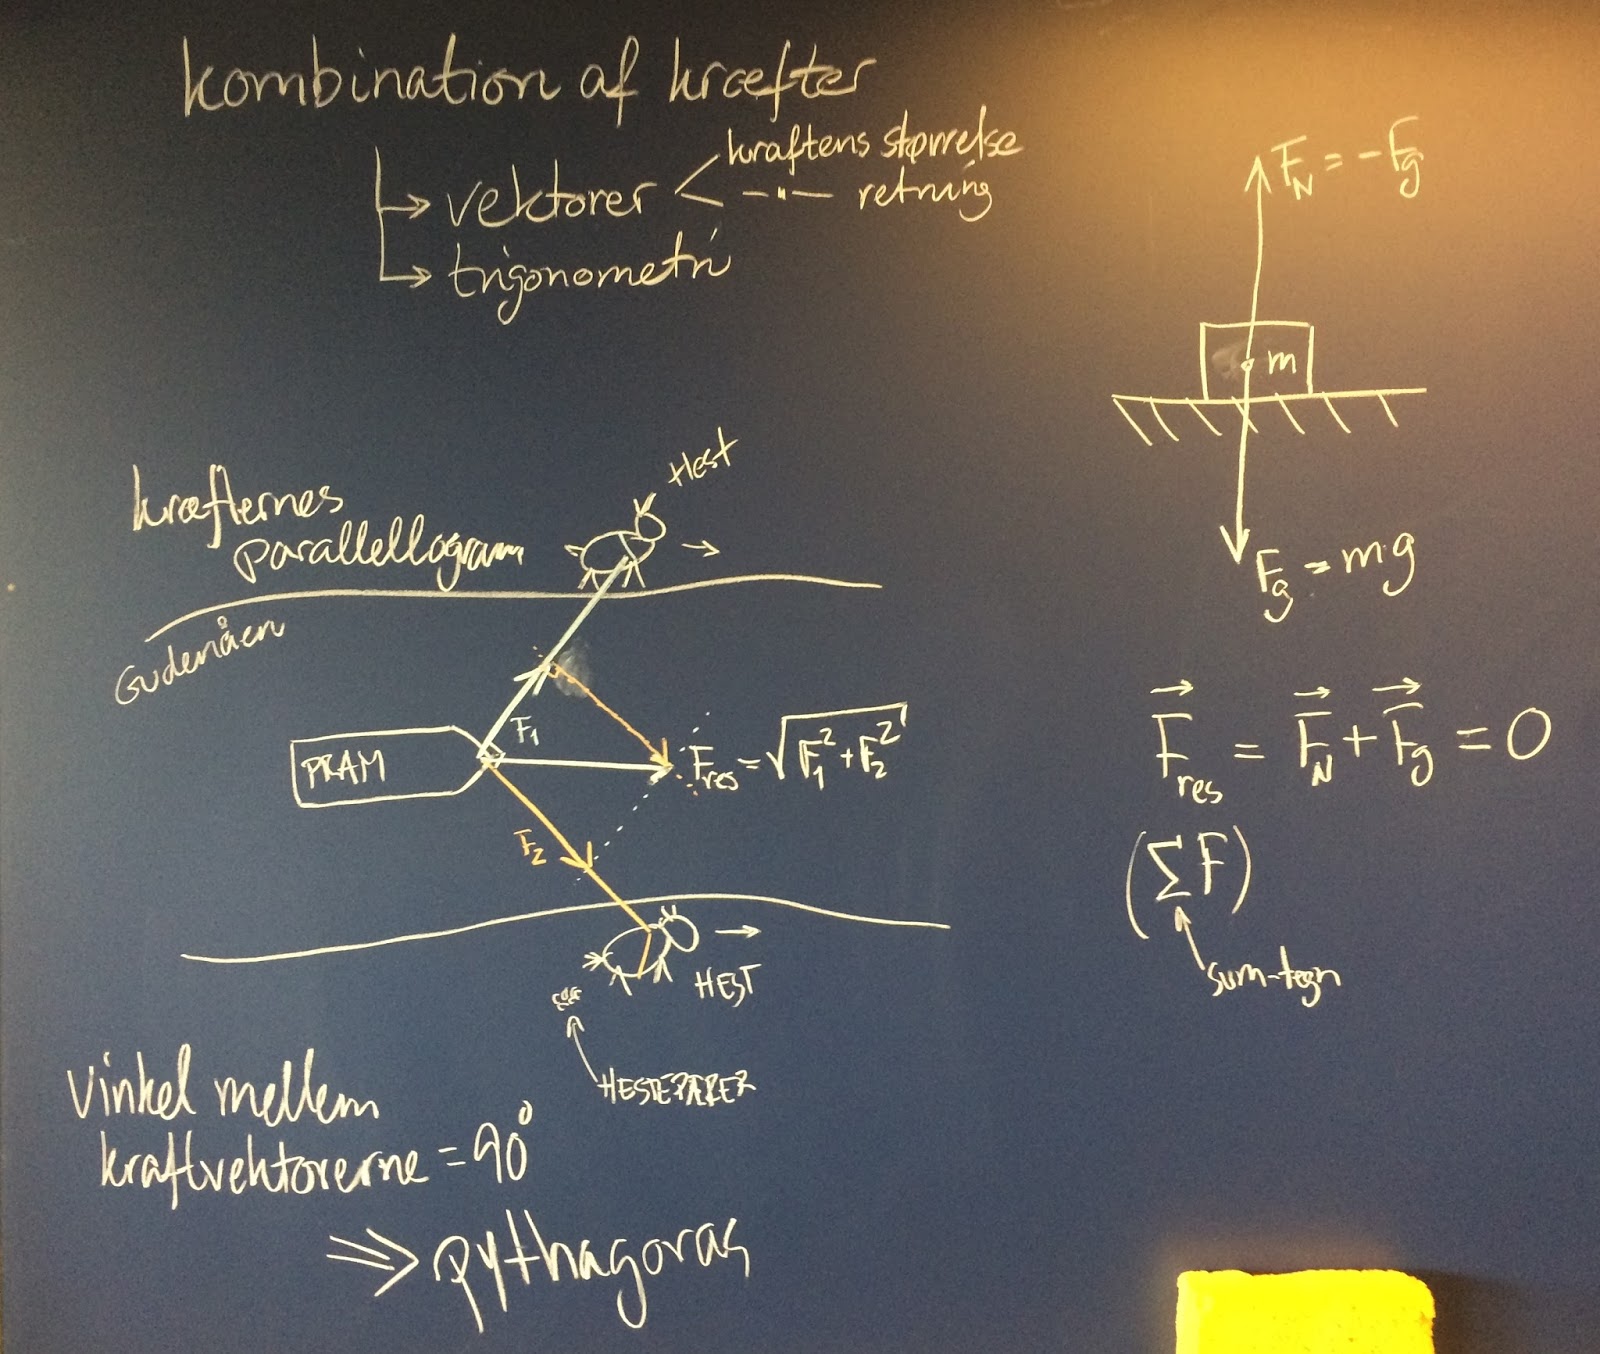 kombination af kræfter
vektorer
kraftens størrelse
—"— retning
trigonometri
F_N = -F_g
m
F_g = m·g
kræfternes
parallellogram
Hest
Gudenåen
F_1
PRAM
F_res = √(F_1^2 + F_2^2)
F_2
HEST
HESTEPÆRER
F_res = F_N + F_g = 0
(ΣF)
sum-tegn
Vinkel mellem
kraftvektorerne = 90°
⇒ pythagoras